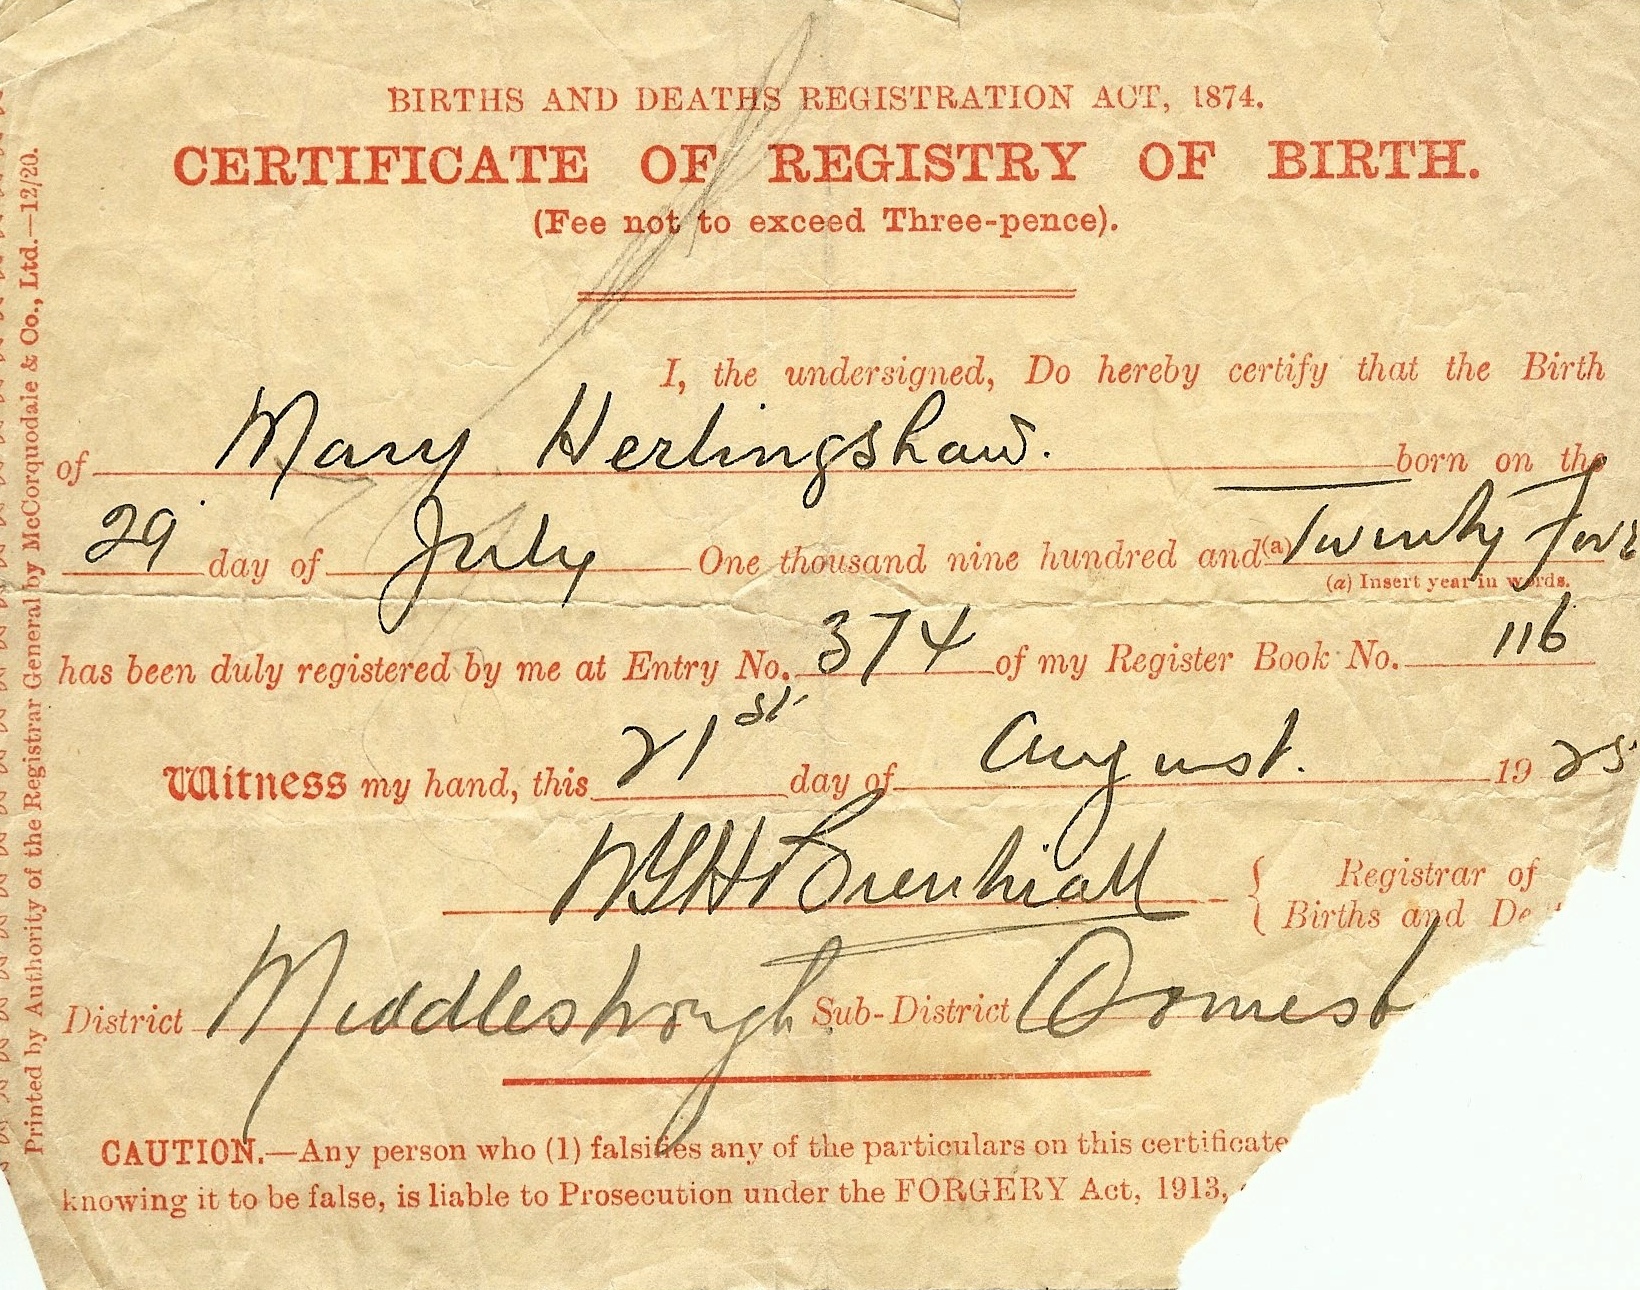 BIRTHS AND DEATHS REGISTRATION ACT, 1874.
CERTIFICATE OF REGISTRY OF BIRTH.
(Fee not to exceed Three-pence).
I, the undersigned, Do hereby certify that the Birth
of Mary Herlingshaw. born on the
29 day of July One thousand nine hundred and (a) Twenty Five
(a) Insert year in words.
has been duly registered by me at Entry No. 374 of my Register Book No. 116
Witness my hand, this 21st day of August. 1925
Registrar of
Births and De
District Middlesbrough Sub-District Ormesb
CAUTION.—Any person who (1) falsifies any of the particulars on this certificate
knowing it to be false, is liable to Prosecution under the FORGERY Act, 1913,
Printed by Authority of the Registrar General by McCorquodale & Co., Ltd.—12/20.